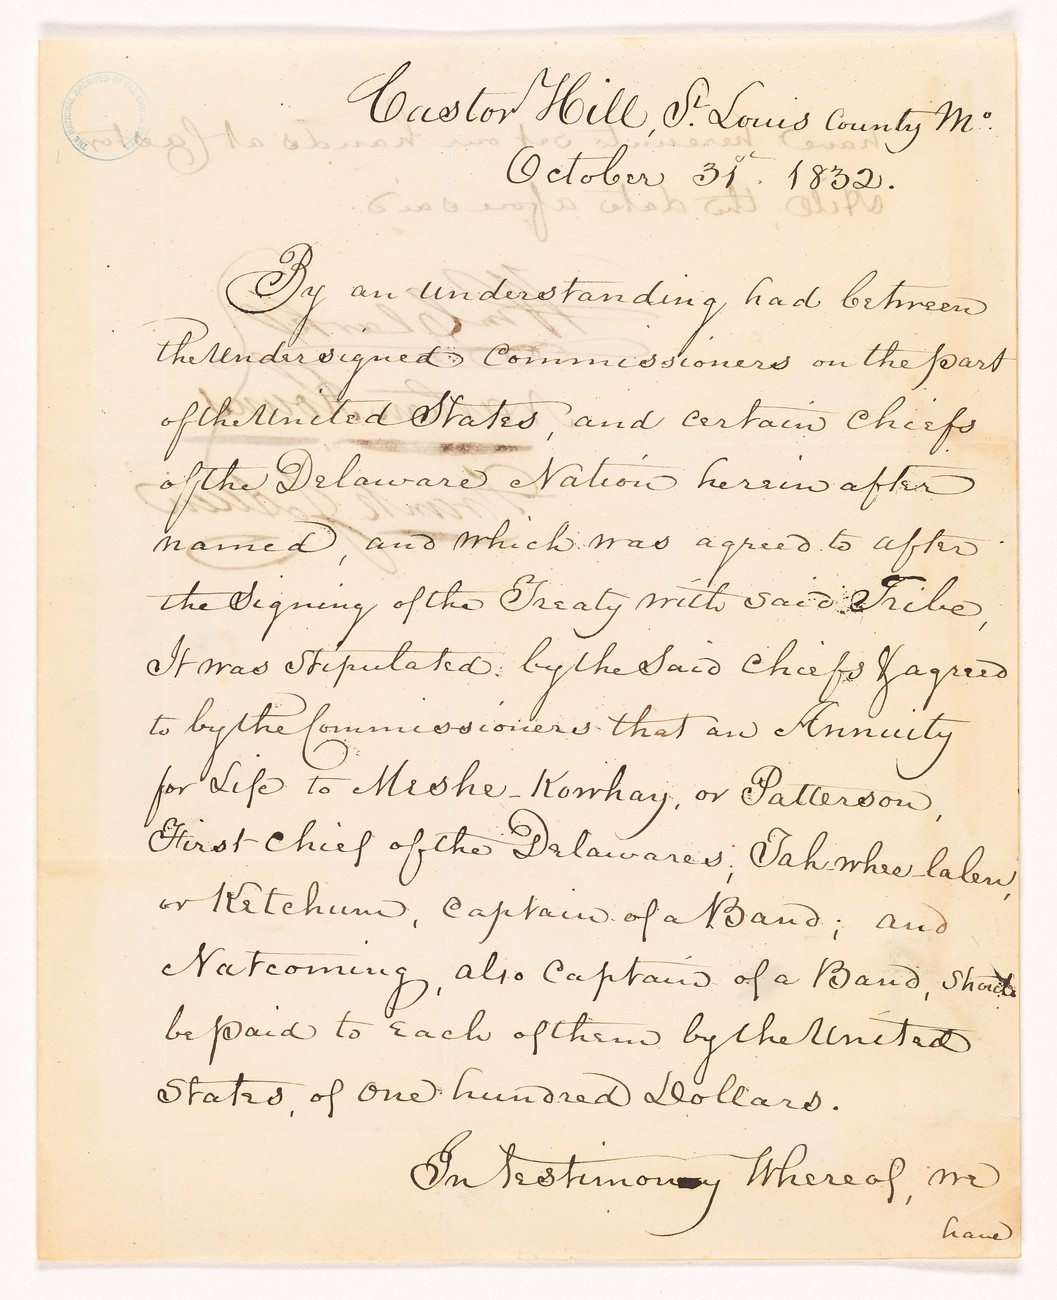 Castor Hill, St. Louis County Mo.
October 31st. 1832.
By an understanding had between
the Undersigned Commissioners on the part
of the United States, and certain Chiefs
of the Delaware Nation herein after
named, and which was agreed to after
the Signing of the Treaty with said Tribe,
It was Stipulated by the Said Chiefs & agreed
to by the Commissioners that an Annuity
for Life to Meshe-Kowhay, or Patterson,
First Chief of the Delawares; Tah-whee-lalen,
or Ketchum, Captain of a Band; and
Natcoming, also Captain of a Band, should
be paid to Each of them by the United
States, of One hundred Dollars.
In testimony Whereof, we
have